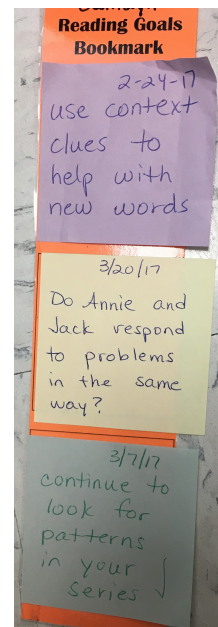 Reading Goals
Bookmark
2-24-17
use context
clues to
help with
new words
3/20/17
Do Annie and
Jack respond
to problems
in the same
way?
3/7/17
continue to
look for
patterns
in your
series